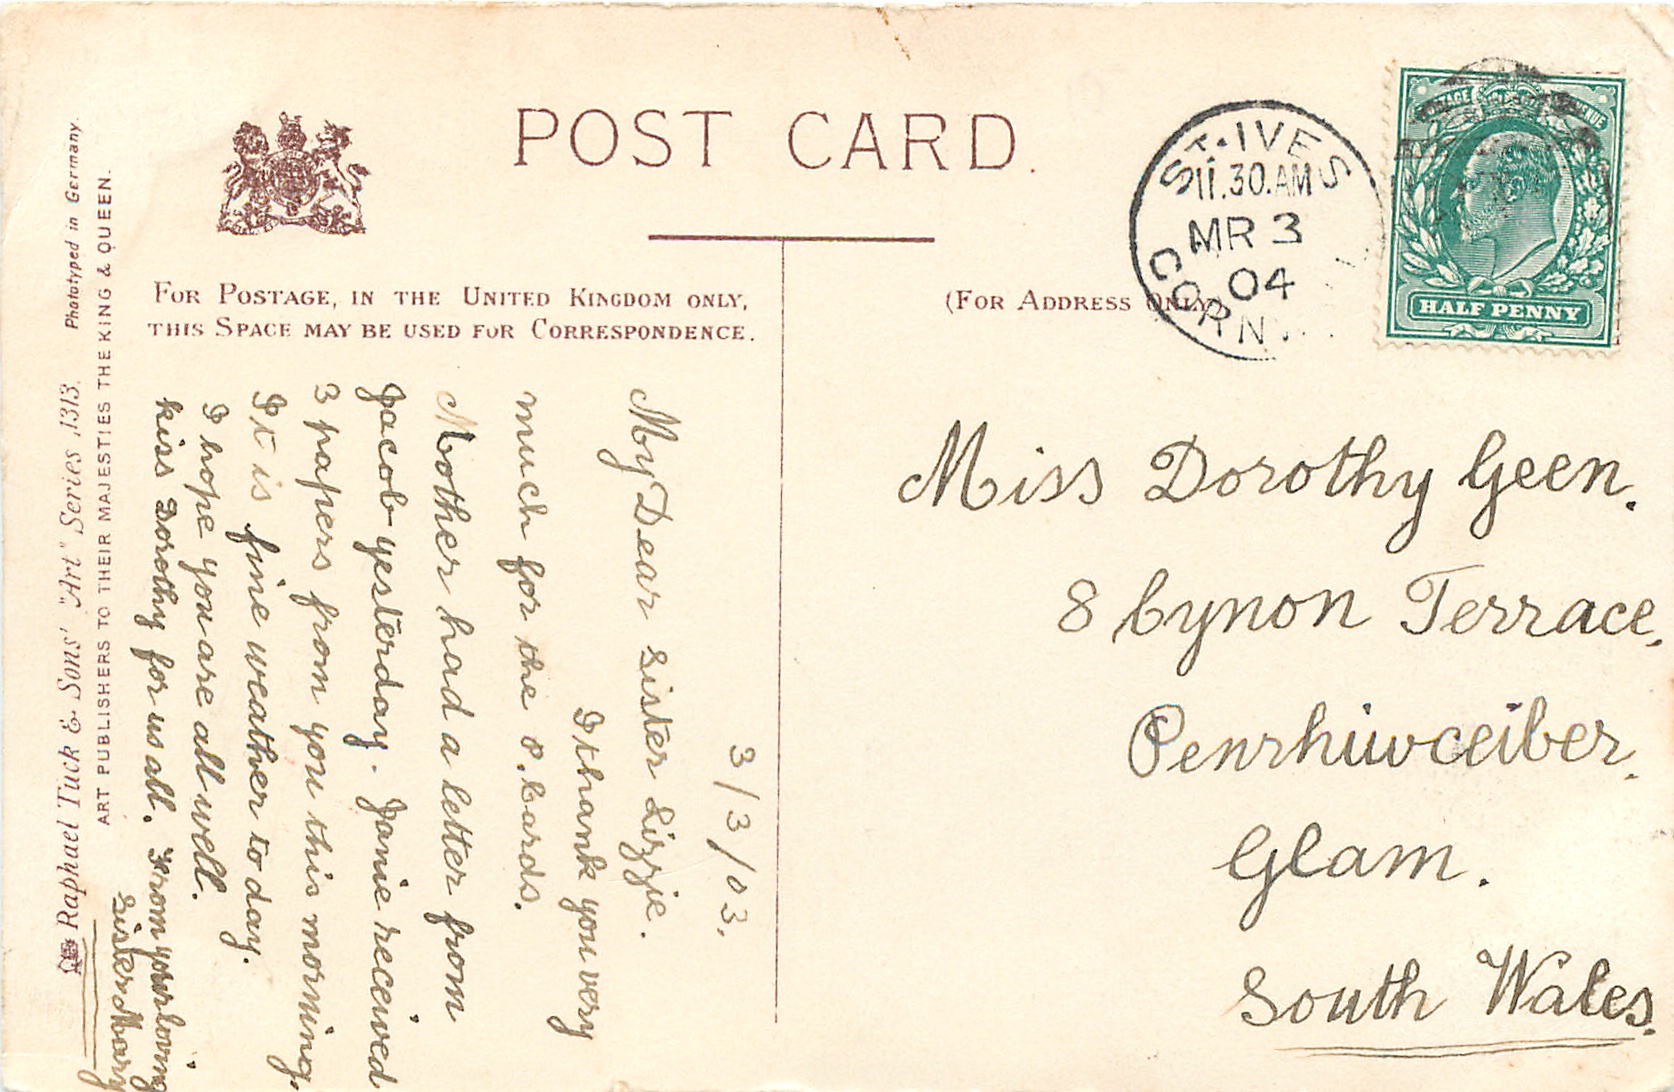 POST CARD.
FOR POSTAGE, IN THE UNITED KINGDOM ONLY,
THIS SPACE MAY BE USED FOR CORRESPONDENCE.
(FOR ADDRESS ONLY)
ST. IVES
11.30.AM
MR 3
04
CORN
POSTAGE REVENUE
HALF PENNY
3/3/03.
My Dear Sister Lizzie.
I thank you very
much for the P. Cards.
Mother had a letter from
Jacob yesterday. Janie received
3 papers from you this morning.
It is fine weather to day.
I hope you are all well.
kiss Dorothy for us all. From your loving
Sister Mary
Miss Dorothy Geen.
8 Cynon Terrace,
Penrhiwceiber.
Glam.
South Wales.
Raphael Tuck & Sons' "Art" Series 1313. Phototyped in Germany.
ART PUBLISHERS TO THEIR MAJESTIES THE KING & QUEEN.